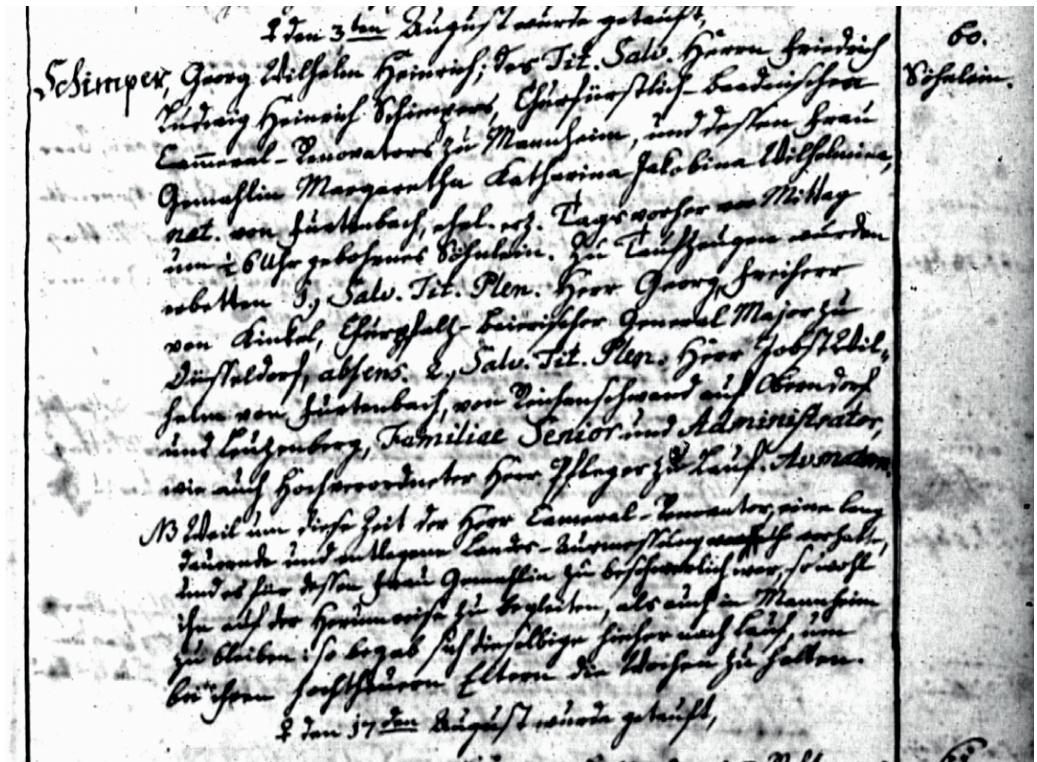 ♀ den 3ten August wurde getauft,
60.
Schimper, Georg Wilhelm Heinrich; des Tit. Salv. Herrn Friedrich
Söhnlein.
Ludwig Heinrich Schimpers, Churfürstlich-baadnischen
Cam̅eral-Renovators zu Mannheim, und dessen Frau
Gemahlin Margaretha Katharina Jakobina Wilhelmina,
nat. von Furtenbach, ehel. erz. Tags vorher vor Mittag
um 6 Uhr gebohrnes Söhnlein. Zu Taufzeugen wurden
erbetten 1., Salv. Tit. Plen. Herr Georg, Freiherr
von Kinkel, Churpfalz-baierischer General Major zu
Düsseldorf, absens. 2., Salv. Tit. Plen. Herr Jobst Wil-
helm von Furtenbach, von Reichenschwand auf Oberndorf
und Leuzenberg, Familiae Senior und Administrator,
wie auch Hochverordneter Herr Pfleger zu Lauf.
NB Weil um diese Zeit der Herr Cameral-Renovator, eine lang
daurende und entlegene Landes-Ausmessung vorhatte,
und es für dessen Frau Gemahlin zu beschwerlich war, so wohl
ihn auf der Herumreise zu begleiten, als auch in Mannheim
zu bleiben: so begab sich dieselbige hieher nach Lauf, um
bei ihren Eltern die Wochen zu halten.
♀ den 17den August wurde getauft,